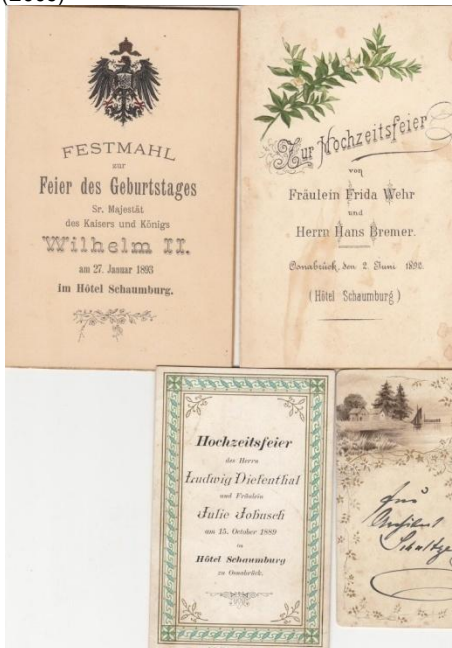 FESTMAHL
zur
Feier des Geburtstages
Sr. Majestät
des Kaisers und Königs
Wilhelm II.
am 27. Januar 1893
im Hôtel Schaumburg.
Zur Hochzeitsfeier
von
Fräulein Frida Wehr
und
Herrn Hans Bremer.
Osnabrück, den 2. Juni 1892.
(Hôtel Schaumburg)
Hochzeitsfeier
des Herrn
Ludwig Diefenthal
und Fräulein
Julie Jobusch
am 15. October 1889
im
Hôtel Schaumburg
zu Osnabrück.